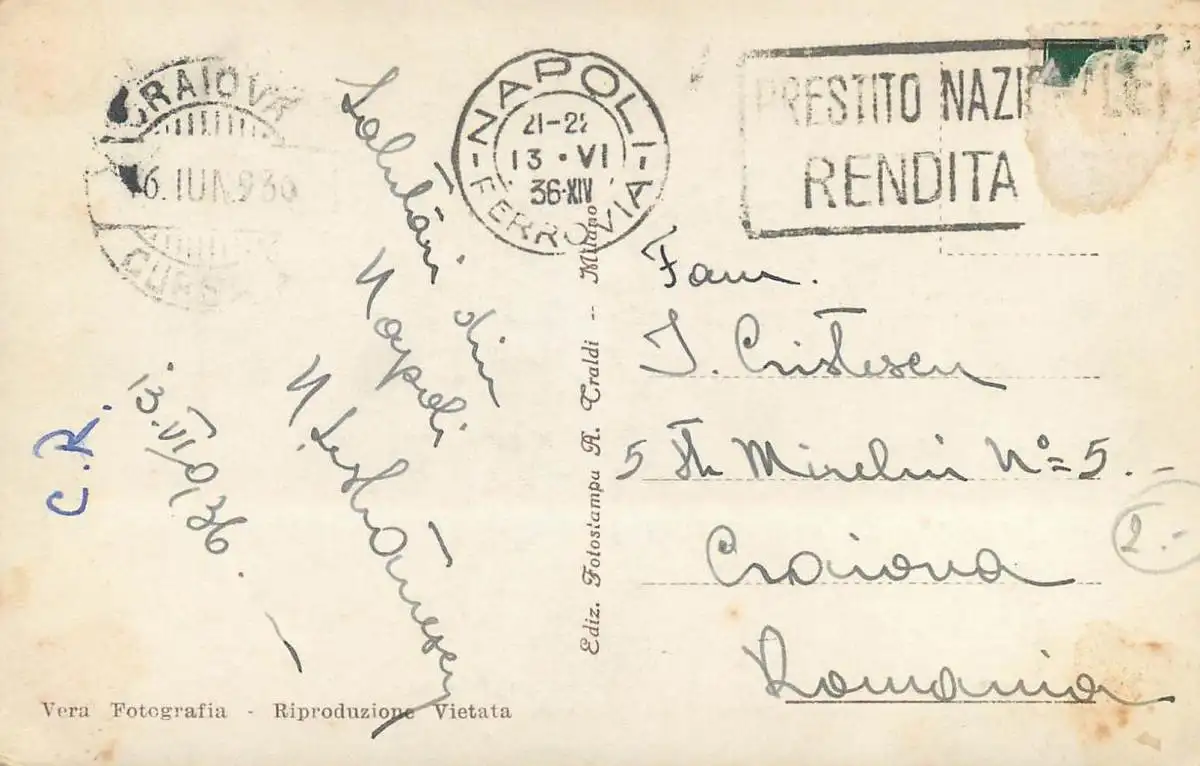 CRAIOVA
16. IUN 936
CURS
NAPOLI
21-22
13 • VI
36•XIV
FERROVIA
PRESTITO NAZIONALE
RENDITA
Salutări din
Napoli
13.VI/936.
C.R.
Fam.
I. Cristescu
5 Str Mirelui No=5.-
Craiova
Romania
2.-
Ediz. Fotostampa A. Traldi -- Milano
Vera Fotografia - Riproduzione Vietata